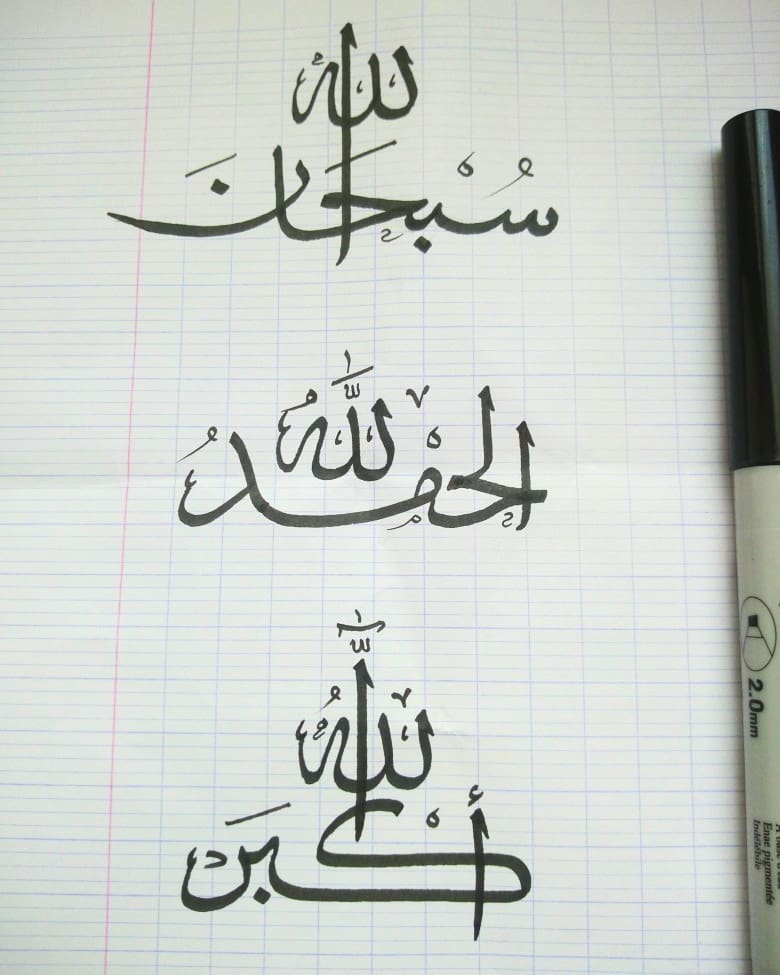 سُبْحَانَ الله
الحمْدُ للّٰهُ
اللّٰهُ أكْبَر
2.0mm
Encre pigmentée
Indélébile